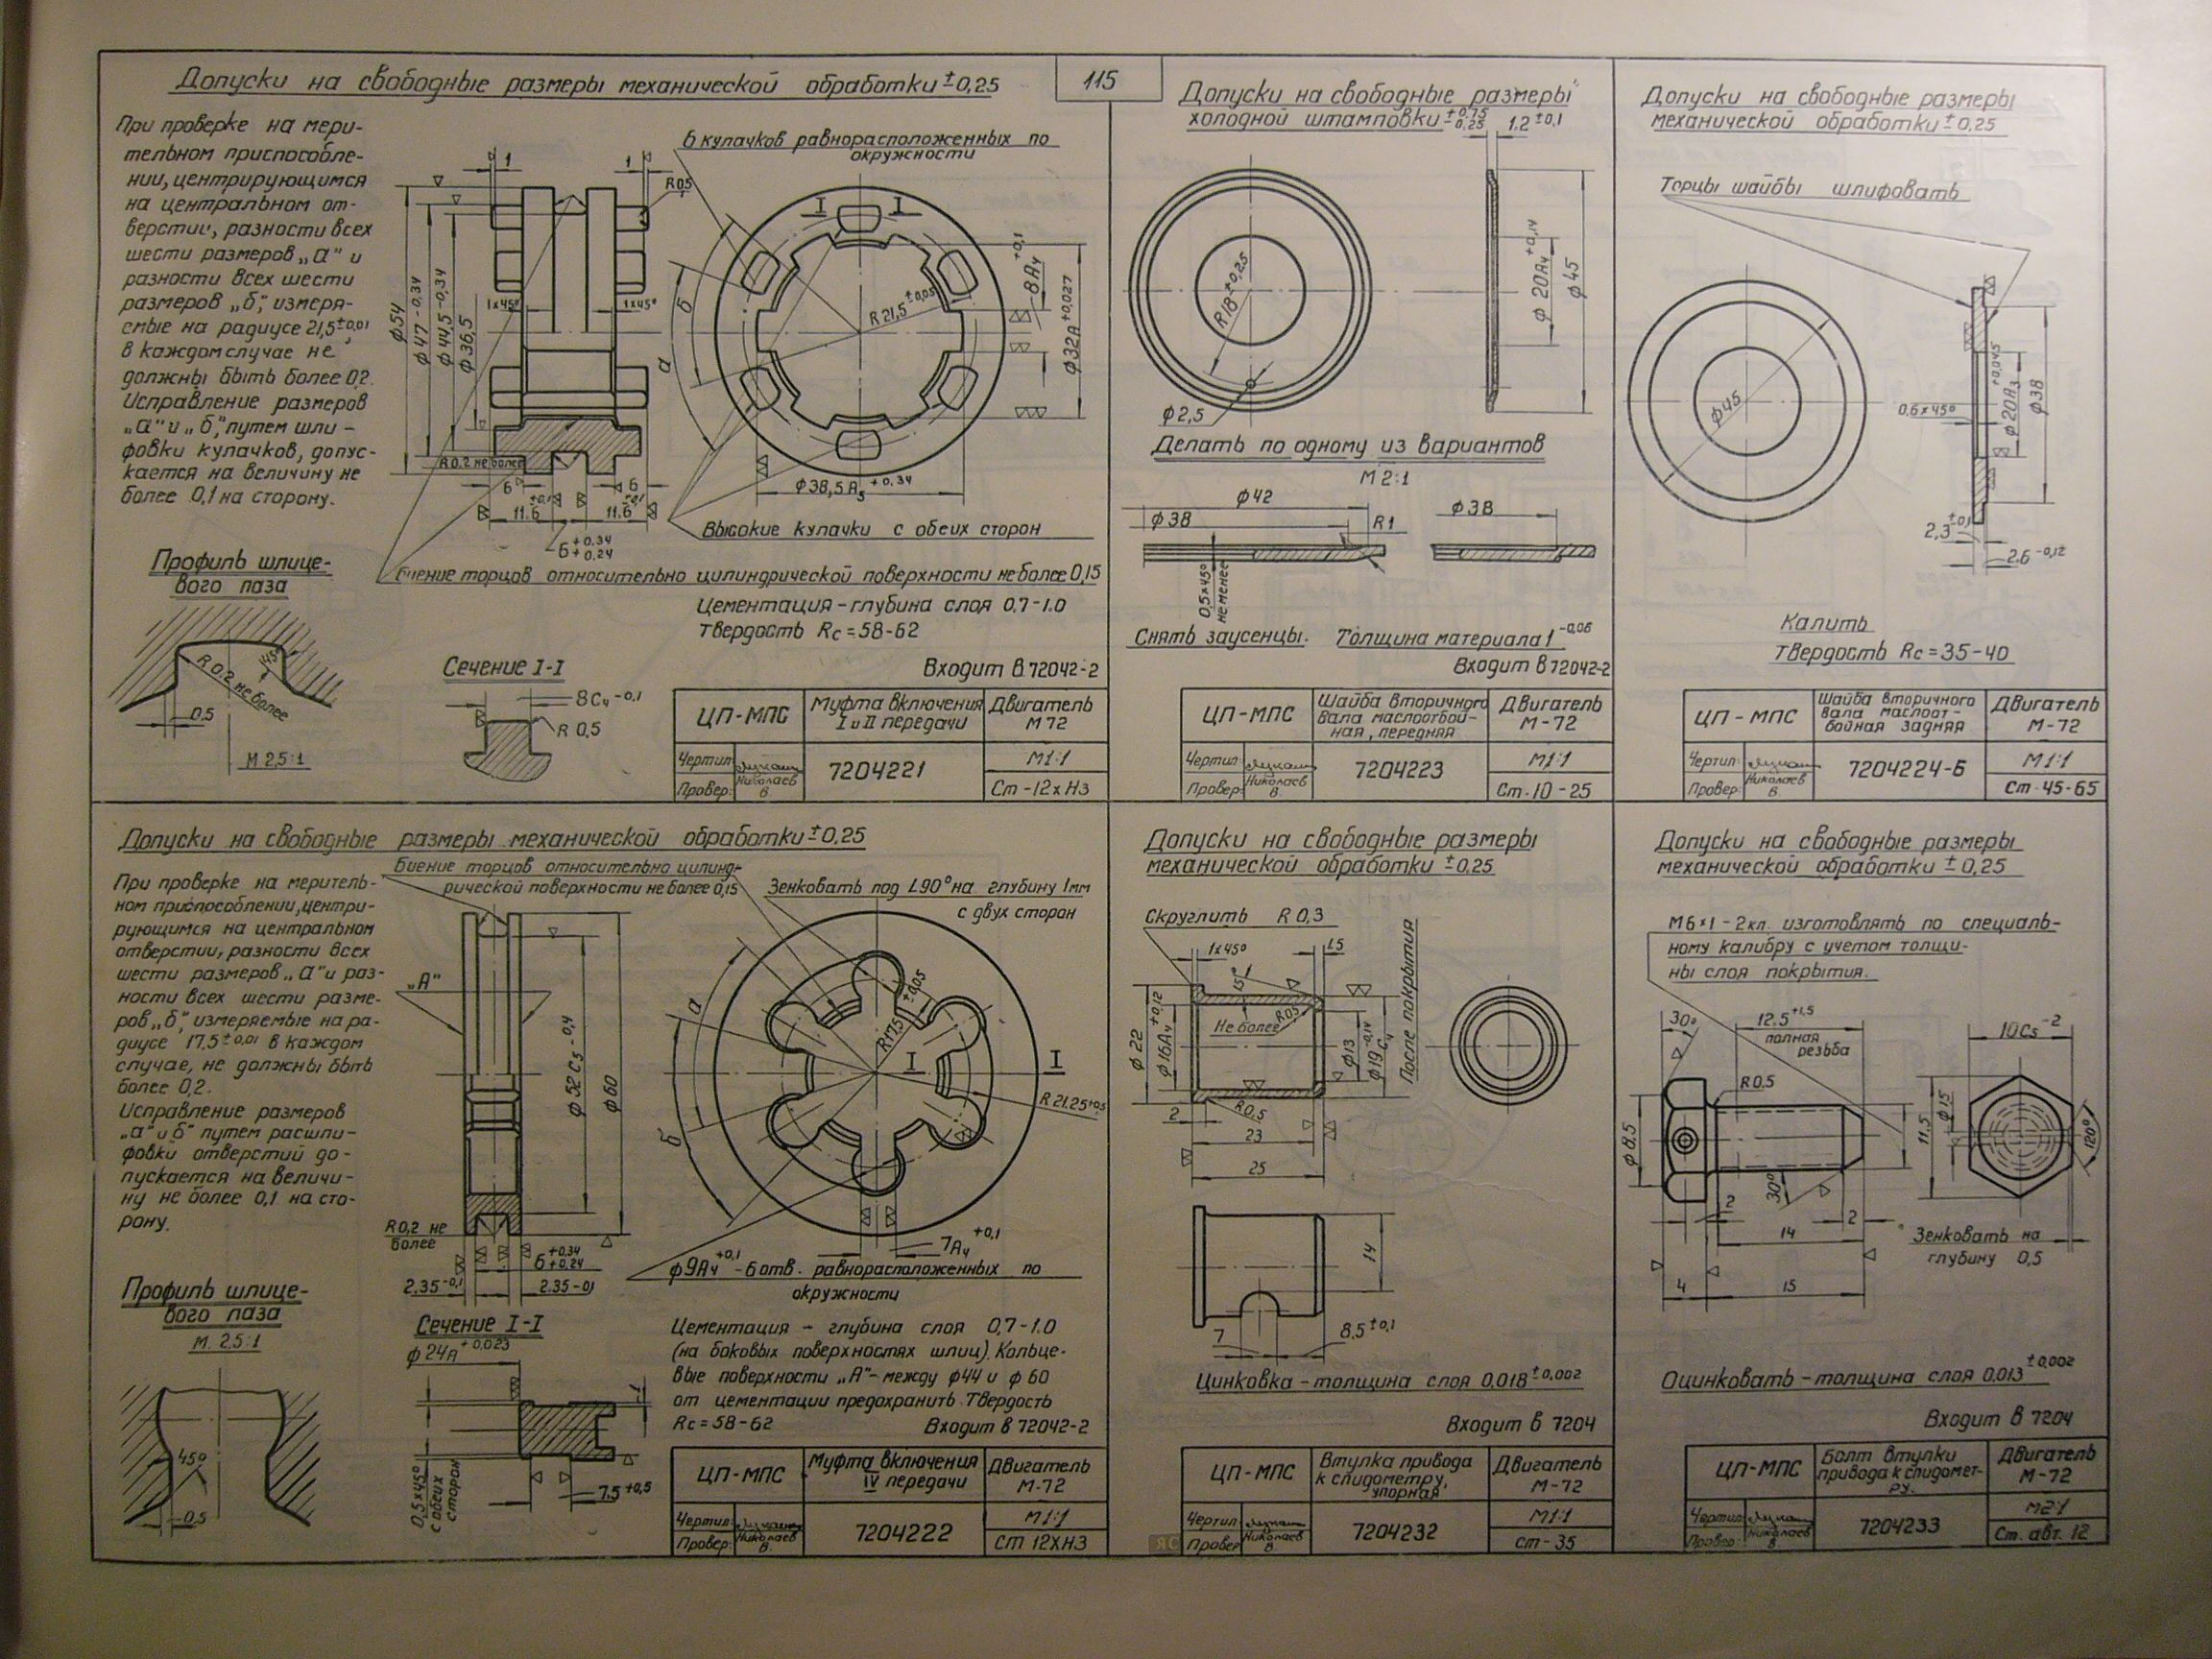 115
Допуски на свободные размеры механической обработки ±0,25
При проверке на мери-
тельном приспособле-
нии, центрирующимся
на центральном от-
верстии, разности всех
шести размеров „а" и
разности всех шести
размеров „б", измеря-
емые на радиусе 21,5±0,01
в каждом случае не
должны быть более 0,2.
Исправление размеров
„а" и „б", путем шли-
фовки кулачков, допус-
кается на величину не
более 0,1 на сторону.
6 кулачков равнорасположенных по
окружности
1
1
R 0,5
ф54
ф47-0,34
ф44,5-0,34
ф36,5
1х45°
1х45°
R 0.2 не более
6
6
11.6+0,1
11.6+0,1
6+0.34+0.24
а
б
I I
R 21,5±0,05
8А4+0,1
ф32А+0,027
ф38,5 А5+0.34
Высокие кулачки с обеих сторон
биение торцов относительно цилиндрической поверхности не более 0,15
Цементация - глубина слоя 0,7-1.0
Твердость Rc=58-62
Профиль шлице-
вого паза
R 0.2 не более
45°
0.5
М 2,5:1
Сечение I-I
8С4-0,1
R 0,5
Входит в 72042-2
ЦП-МПС
Муфта включения
I и II передачи
Двигатель
М 72
Чертил:
Провер:
Николаев
В.
7204221
М1:1
Ст-12хН3
Допуски на свободные размеры
холодной штамповки +0,75-0,25
1.2±0,1
R18±0,25
ф2,5
ф 20А4+0,14
ф45
Делать по одному из вариантов
М 2:1
ф42
ф38
R1
ф38
0,5х45°
не менее
Снять заусенцы. Толщина материала 1-0,06
Входит в 72042-2
ЦП-МПС
Шайба вторичного
вала маслоотбой-
ная, передняя
Двигатель
М-72
Чертил:
Провер:
Николаев
В.
7204223
М1:1
Ст.10-25
Допуски на свободные размеры
механической обработки ±0,25
Торцы шайбы шлифовать
ф45
0,6х45°
ф20А3+0,045
ф38
2,3±0,1
2.6-0,12
Калить
Твердость Rc=35-40
ЦП-МПС
Шайба вторичного
вала маслоот-
бойная задняя
Двигатель
М-72
Чертил:
Провер:
Николаев
В.
7204224-Б
М1:1
Ст 45-65
Допуски на свободные размеры механической обработки ±0,25
При проверке на меритель-
ном приспособлении, центри-
рующимся на центральном
отверстии, разности всех
шести размеров „а" и раз-
ности всех шести разме-
ров „б", измеряемые на ра-
диусе 17.5±0,01 в каждом
случае, не должны быть
более 0,2.
Исправление размеров
„а" и б" путем расшли-
фовки отверстий до-
пускается на величи-
ну не более 0,1 на сто-
рону.
биение торцов относительно цилинд-
рической поверхности не более 0,15
Зенковать под L90° на глубину 1мм
с двух сторон
„А"
ф52 С5-0,4
ф60
R 0,2 не
более
6+0,34+0,24
2.35-0,1
2.35-0,1
а
б
R17,5±0,05
I I
R 21.25+0,5
7А4+0,1
ф9А4+0,1 - 6 отв. равнорасположенных по
окружности
Профиль шлице-
вого паза
М. 2,5:1
45°
0,5
Сечение I-I
ф24А+0,023
1
0,5х45°
с обеих
сторон
7.5+0,5
Цементация - глубина слоя 0,7-1.0
(на боковых поверхностях шлиц). Кольце-
вые поверхности „А"-между ф44 и ф60
от цементации предохранить. Твердость
Rc=58-62 Входит в 72042-2
ЦП-МПС
Муфта включения
IV передачи
Двигатель
М-72
Чертил:
Провер:
Николаев
В.
7204222
М1:1
Ст 12ХН3
Допуски на свободные размеры
механической обработки ±0,25
Скруглить R 0,3
1х45°
1.5
15°
R0,5
Не более
ф22
ф16А4+0,12
ф13
ф19-0,14 С4
После покрытия
R0,5
2
23
25
14
7
8,5±0,1
Цинковка-толщина слоя 0,018±0,002
Входит в 7204
ЦП-МПС
Втулка привода
к спидометру,
упорная
Двигатель
М-72
Чертил
Провер
Николаев
В.
7204232
М1:1
Ст-35
ЯС
Допуски на свободные размеры
механической обработки ±0,25
М6×1-2кл. изготовлять по специаль-
ному калибру с учетом толщи-
ны слоя покрытия.
30°
12.5+1,5
полная
резьба
R0,5
10С5-2
ф8.5
11,5
ф1,5
120°
30°
2
2
14
4
15
Зенковать на
глубину 0,5
Оцинковать-толщина слоя 0.013±0,002
Входит в 7204
ЦП-МПС
Болт втулки
привода к спидомет-
ру.
Двигатель
М-72
Чертил:
Провер:
Николаев
В
7204233
М2:1
Ст. авт. 12